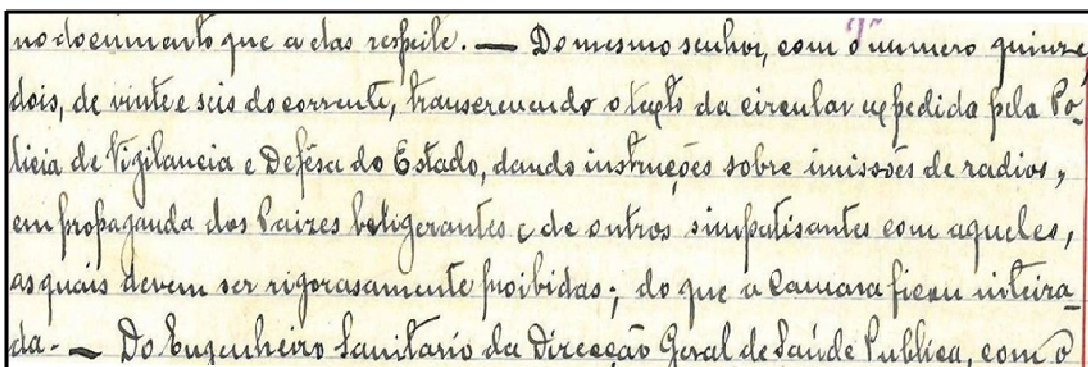 no documento que a elas respeite. — Do mesmo senhor, com o numero quinze
dois, de vinte e seis do corrente, transcrevendo o texto da circular expedida pela Po-
licia de Vigilancia e Defêsa do Estado, dando instruções sobre imissões de radios,
em propaganda dos Paizes beligerantes e de outros simpatisantes com aqueles,
as quais devem ser rigorasamente proibidas; do que a Camara ficou inteira-
da. — Do Engenheiro Sanitario da Direcção Geral de Saúde Publica, com o